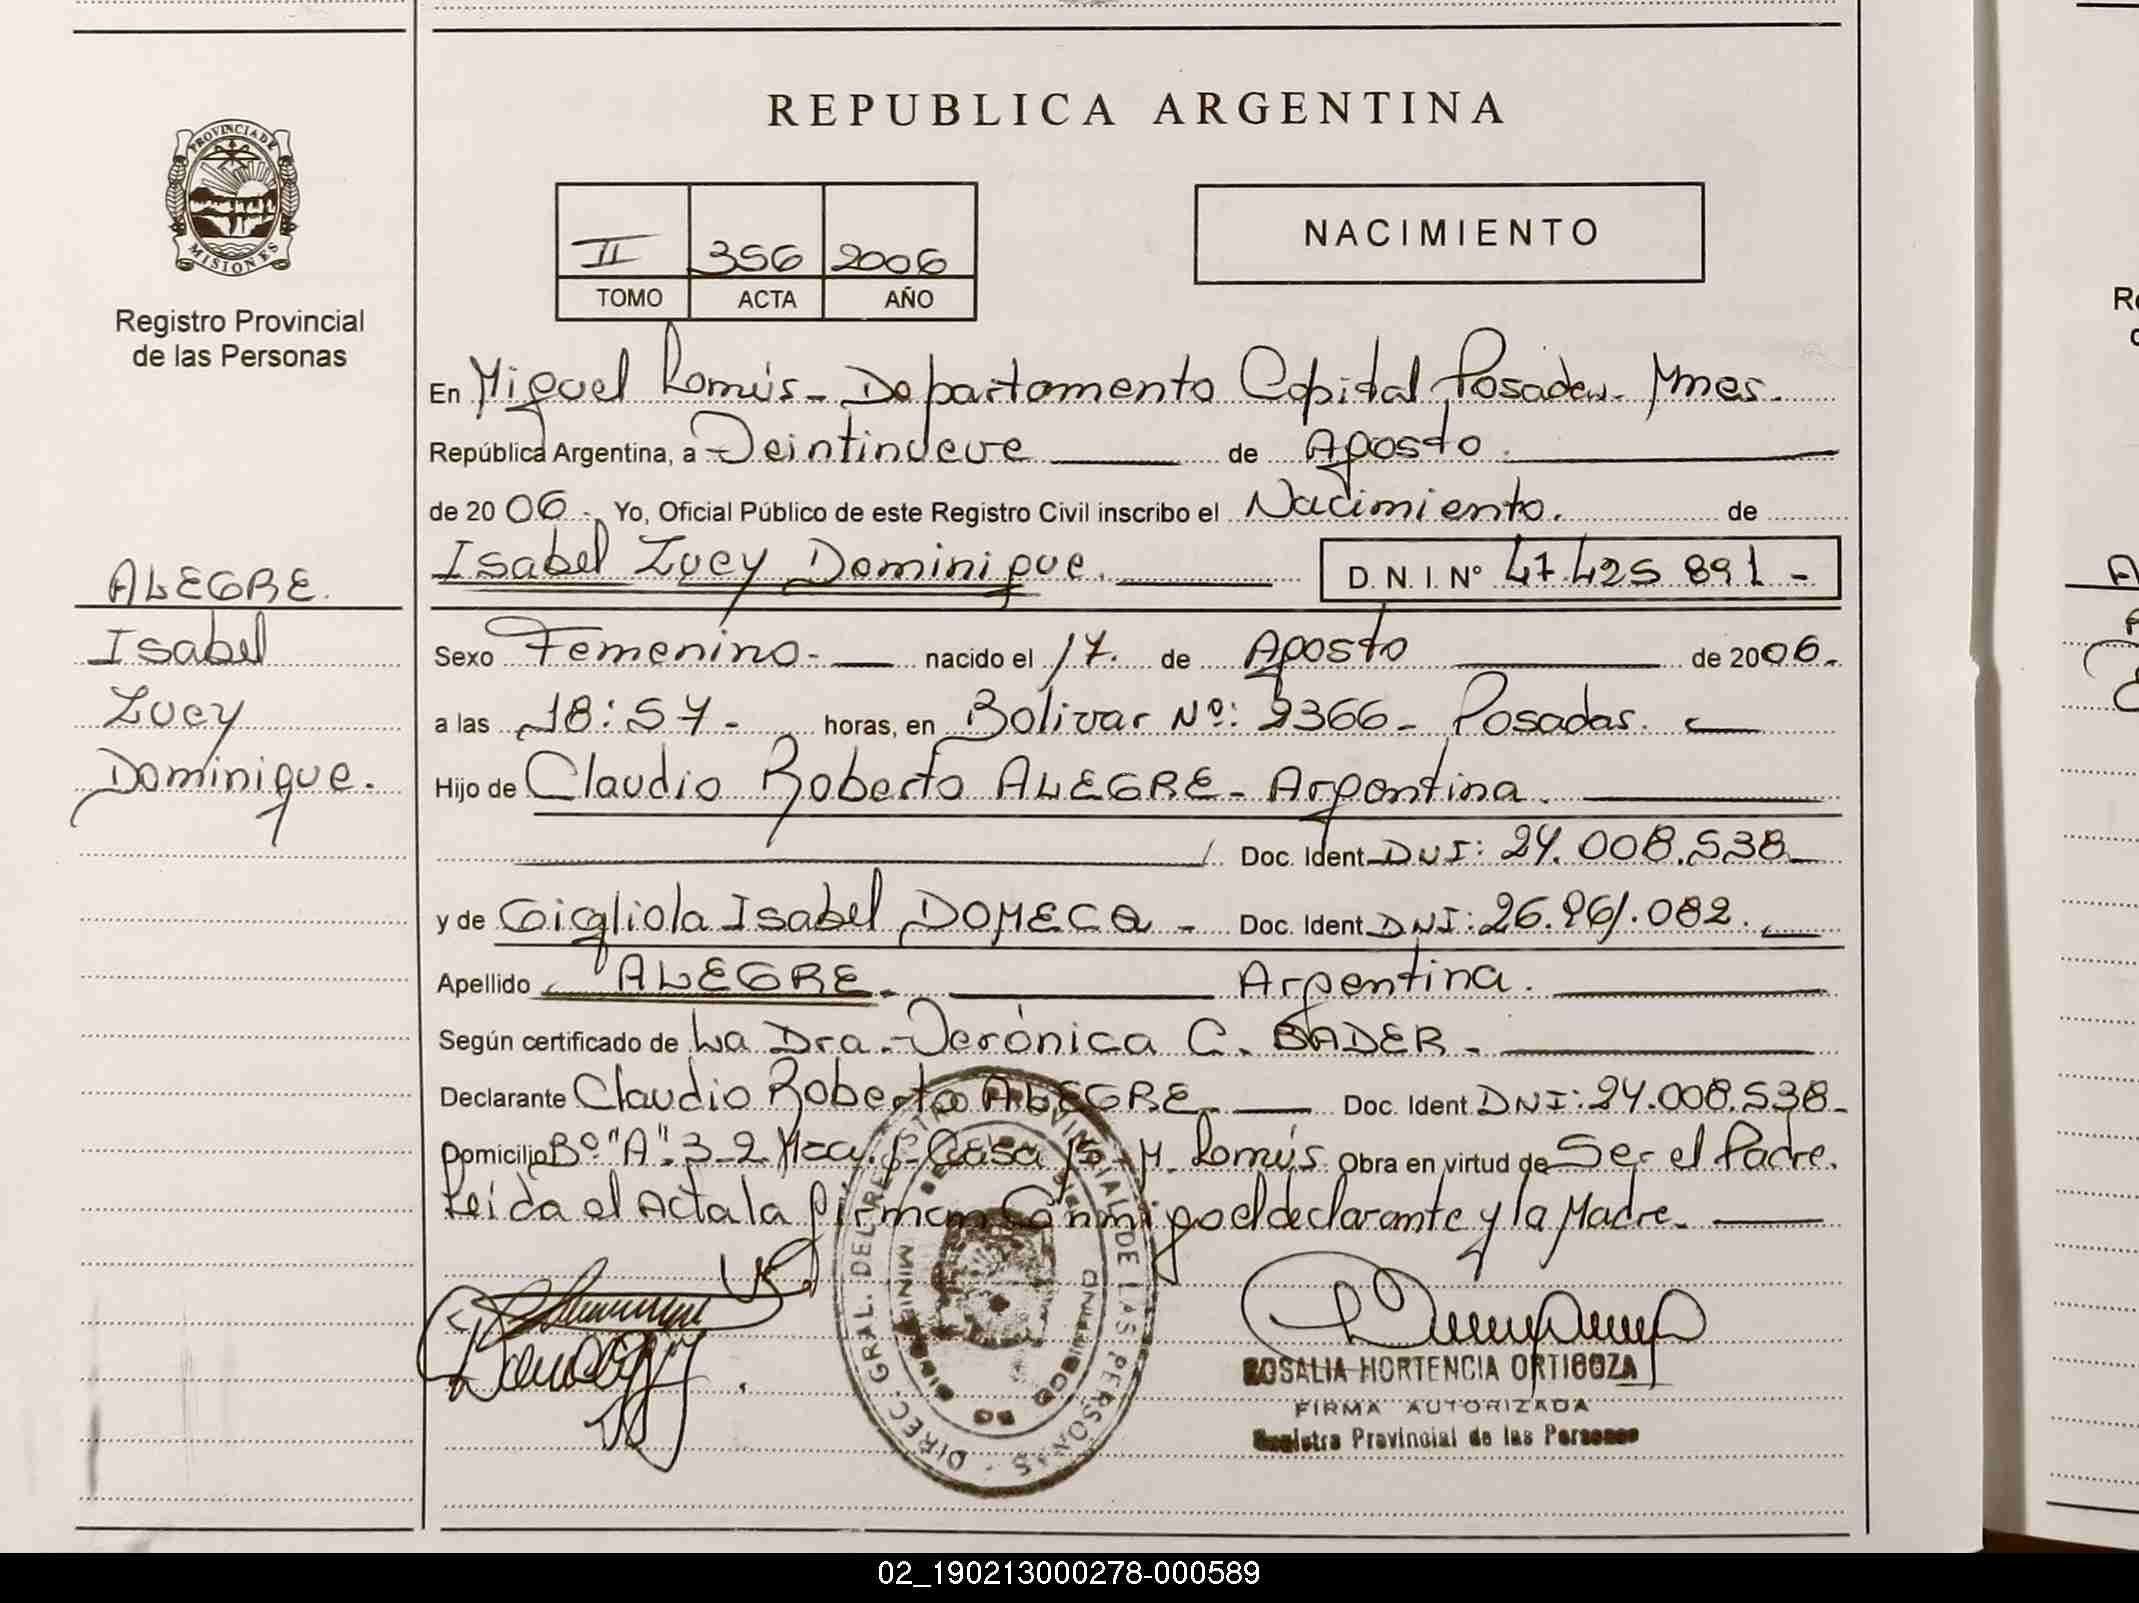 REPUBLICA ARGENTINA
PROVINCIA DE
MISIONES
Registro Provincial
de las Personas
II 356 2006
TOMO ACTA AÑO
NACIMIENTO
En Miguel Lanús - Departamento Capital Posadas - Mnes.
República Argentina, a Veintinueve de Agosto
de 2006 - Yo, Oficial Público de este Registro Civil inscribo el Nacimiento. de
Isabel Lucy Dominique. D. N. I. Nº 47.425 891 -
ALEGRE.
Isabel
Lucy
Dominique.
Sexo Femenino - nacido el 17. de Agosto de 2006.
a las 18:57 - horas, en Bolivar Nº: 2366 - Posadas.
Hijo de Claudio Roberto ALEGRE - Argentina.
Doc. Ident DNI: 24.008.538
y de Gigliola Isabel DOMECQ - Doc. Ident DNI: 26.961.082.
Apellido ALEGRE. Argentina.
Según certificado de La Dra. Verónica C. BADER -
Declarante Claudio Roberto ALEGRE - Doc. Ident DNI: 24.008.538 -
Domicilio Bº "A" 3-2 Mza. Casa 15 - M. Lanús. Obra en virtud de Ser el Padre.
Leida el Acta la firman Conmigo el declarante y la Madre -
DIREC. GRAL. DEL REGISTRO PROVINCIAL DE LAS PERSONAS
ROSALIA HORTENCIA ORTIGOZA
FIRMA AUTORIZADA
Registro Provincial de las Personas
02_190213000278-000589